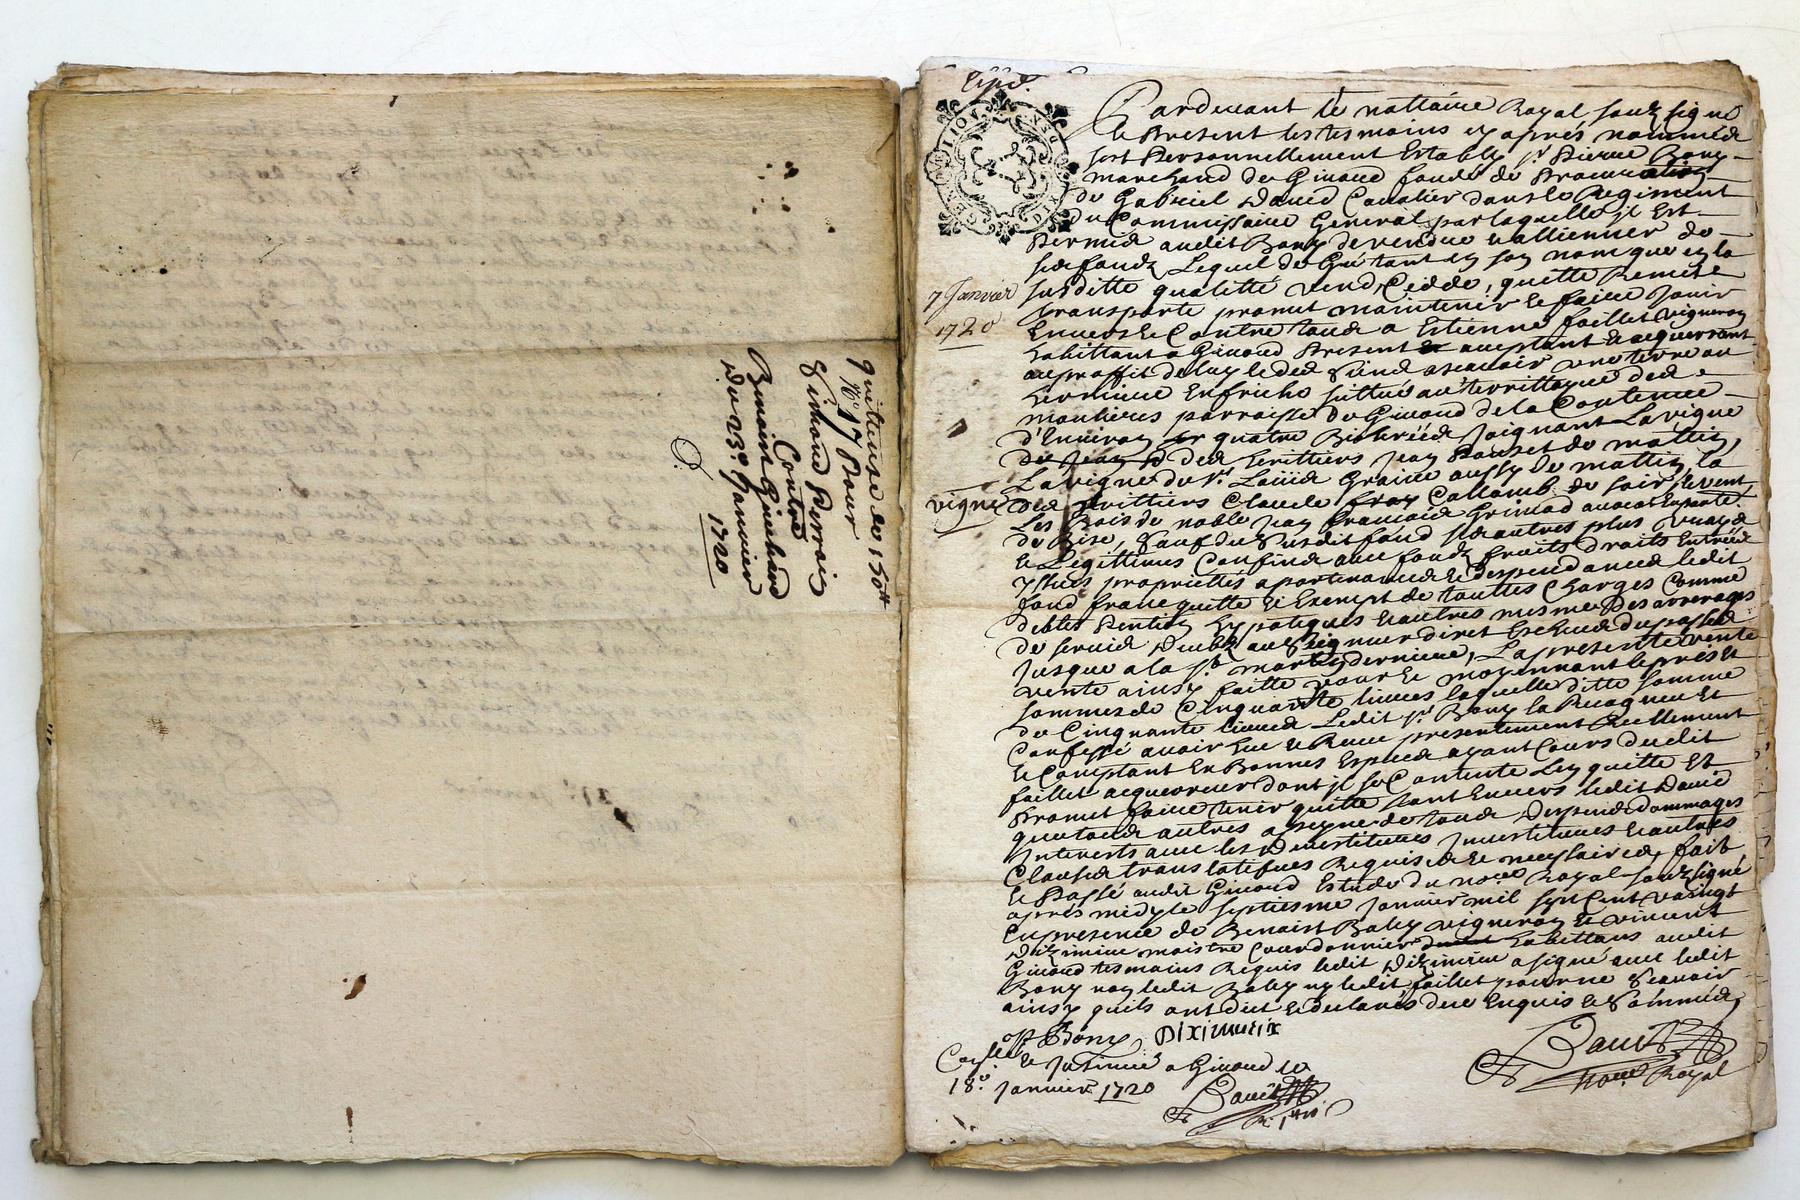 quittence de 150tt
Nº 17 Pour
Simond Perrain
Contre
Benoist Guichard
Du 23e Janvier
1720
Expd.
Pardevant le nottaire Royal souz signé
et Present les tesmoins cy après nommés
fust Personnellement Estably sr Pierre Bony
marchand de Givord fondé de Procuration
de Gabriel David Cavalier dans le Regiment
du Commissaire General par laquelle il Est
Permis audit Bony de vendre et allienner de
ses fondz Lequel de Gré tant en son nom que en la
7 Janvier
1720
susditte qualitté vend, Cedde, quitte Remet et
transporte promet maintenir et faire Jouir
Envers et Contre tous a Estienne faillet vigneron
habittant a Givord Present acceptant et acquerrant
au proffit de luy et des siens ascavoir une terre ou
hermiture En friche sittué au territtoyre des
moulieres parroisse de Givord de la Contenue
d'Environ quatre Bicherées Joignant La vigne
des herittiers Jean de mattin,
La vigne du sr Louis Graire aussy de mattin, la
vigne
des herittiers Claude Collomb de soir et vent
Les Bois de noble Jean francois Grimod avocat En parte
de Bise, sauf du susdit fond ses autres plus vrays
et Legittimes Confins avec fondz fruits droits Entrées
yssues proprietés apartenances et despendances ledit
fond franc quitte et Exempt de touttes Charges Comme
debtes Pention hypoteques et autres mesmes des arrerages
de servis Deubz au seigneur direct Escheus du passé
Jusque a la st martin derniere, La presente vente
vente ainsy faitte pour et moyennant le prés et
sommes de Cinquante livres laquelle ditte somme
de Cinquante livres Ledit sr Bony la Recogneu et
Confessé avoir Eue et Receu presentement Reellement
et Comptant En Bonnes Especes ayant Cours dudit
faillet acquereur dont il se Contente L'en quitte Et
Promet faire tenir quitte tant Envers ledit David
que tous autres a peyne de tous Despends dommages
Interests avec les Devestitures Investitures et autres
Clauses translatifves Requises et necessaires, fait
et Passé audit Givord Estude du nore Royal souz signé
après midy le septiesme Janvier mil sept Cent vaingt
En presence de Benoist Baley vigneron et vincent
Diximier maistre Courdonnier habittans audit
Givord tesmoins Requis ledit Diximier a signé avec ledit
Bony non ledit Baley ny ledit faillet pour ne scavoir
ainsy quils ont dit et declarés de ce Enquis et sommés,
P Bony, Diximieix
Conllé et Insinué a Givord le
18e Janvier 1720
nore Royal